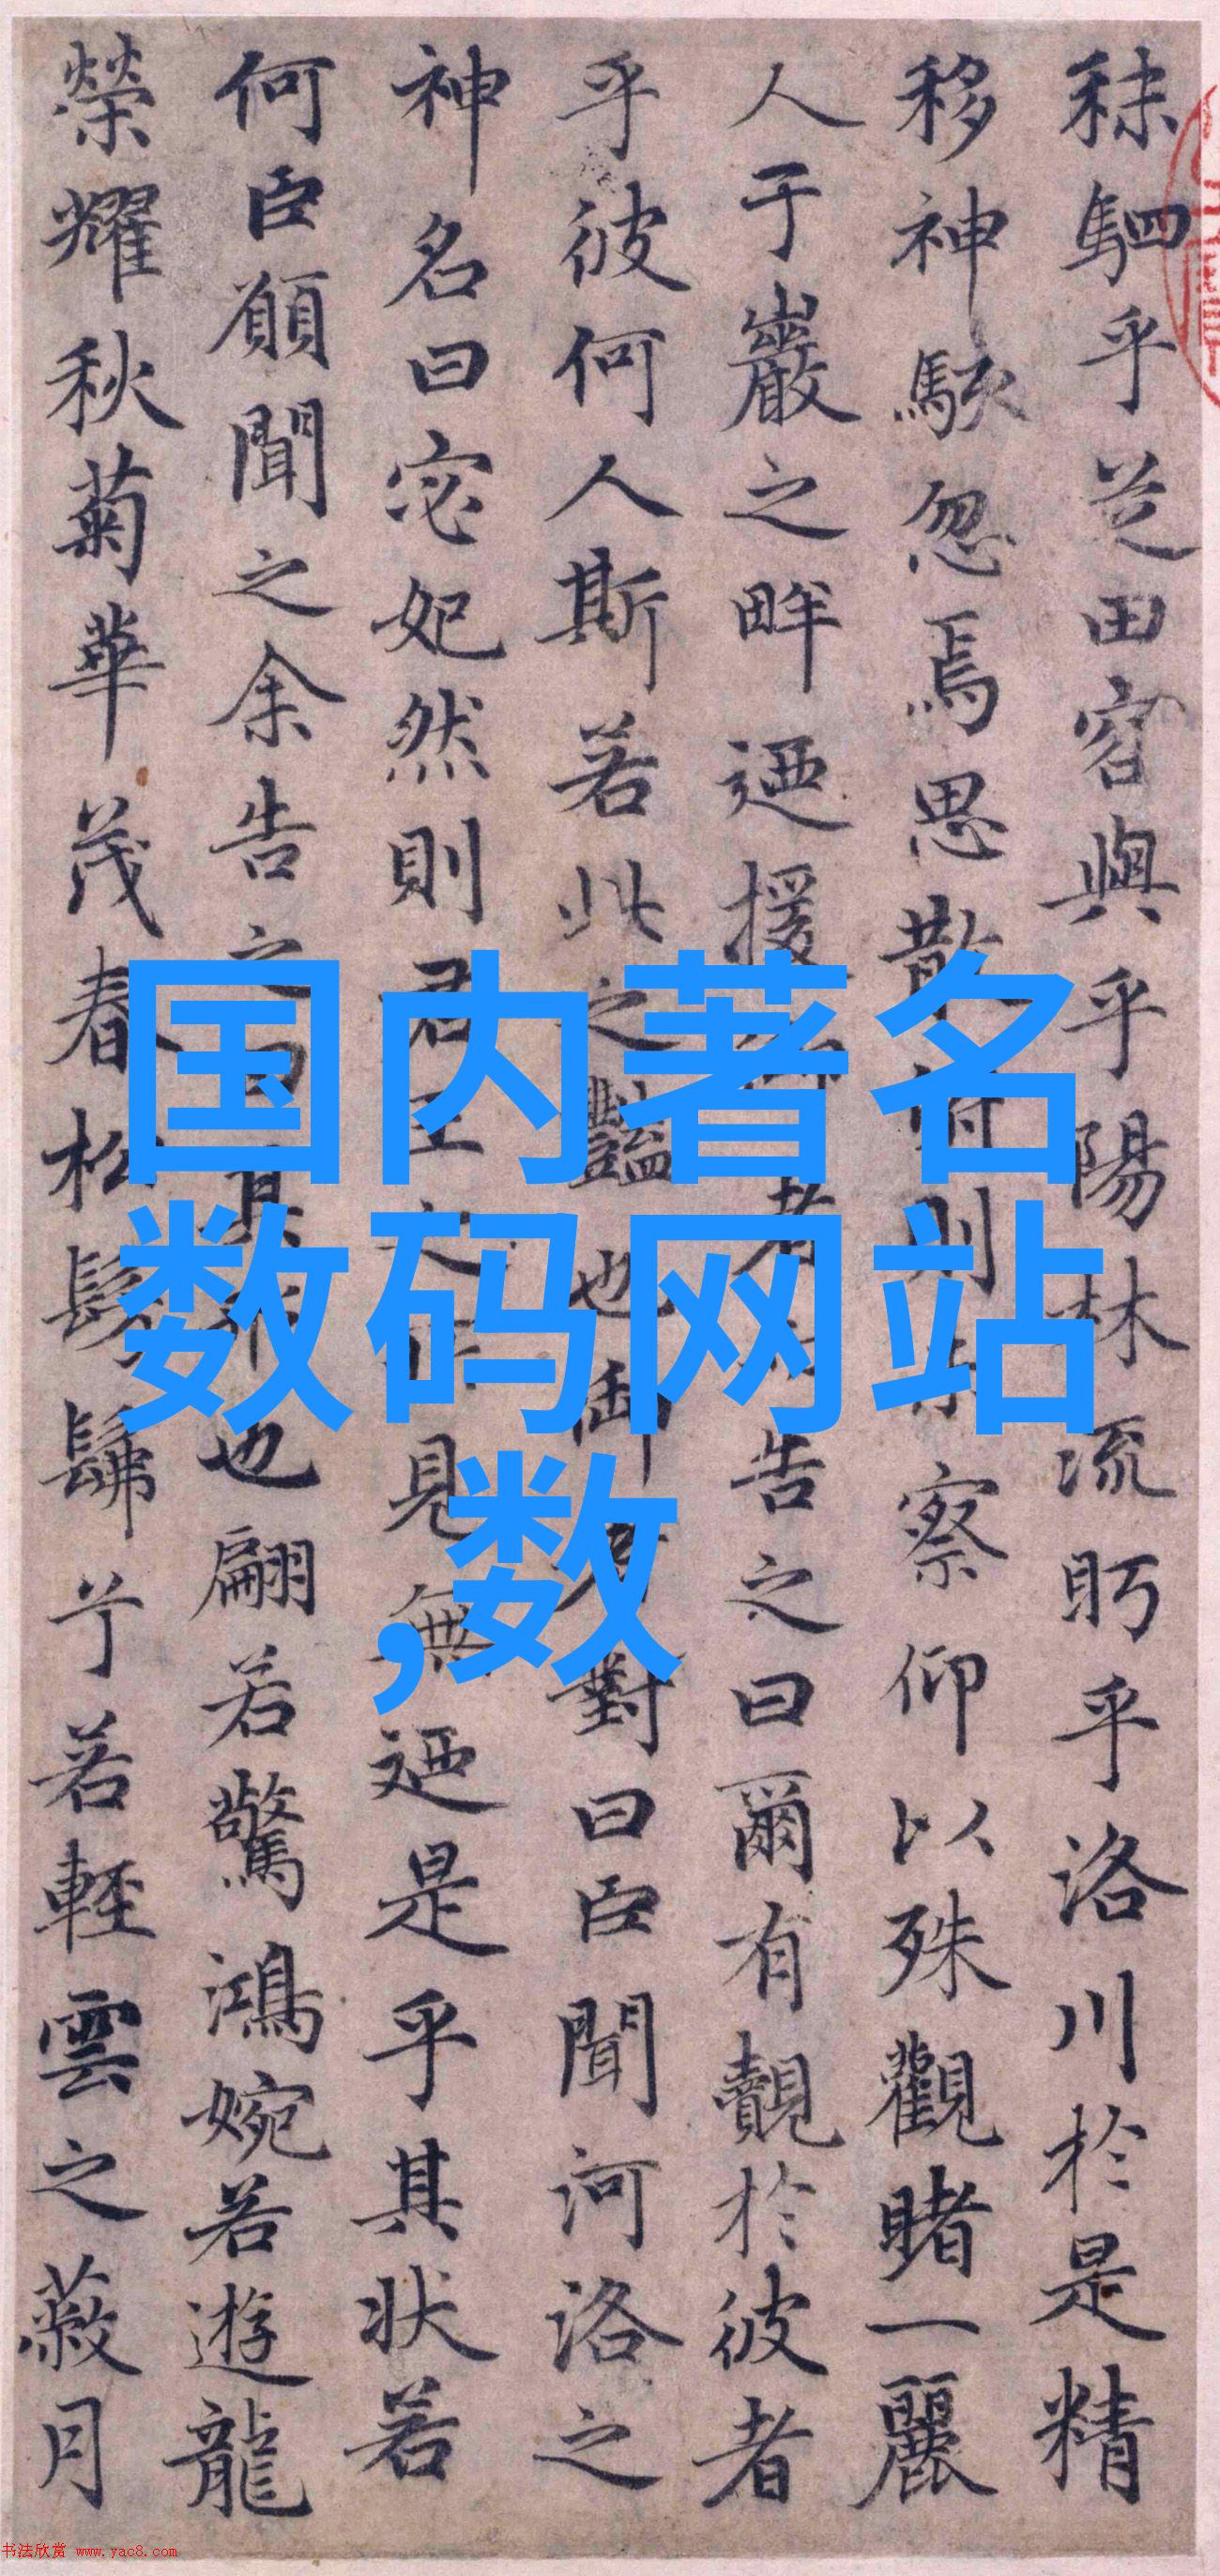 秣駟乎芝田容與乎陽林流眄乎洛川於是精
移神駭忽焉思散俯則未察仰以殊觀睹一麗
人于巖之畔迺援御者而告之曰爾有覿於彼者
乎彼何人斯若此之豔也御者對曰臣聞河洛之
神名曰宓妃然則君王之所見無迺是乎其狀若
何臣願聞之余告之曰其形也翩若驚鴻婉若遊龍
榮耀秋菊華茂春松髣髴兮若輕雲之蔽月
国内著名
数码网站
,数
书法欣赏 www.yac8.com